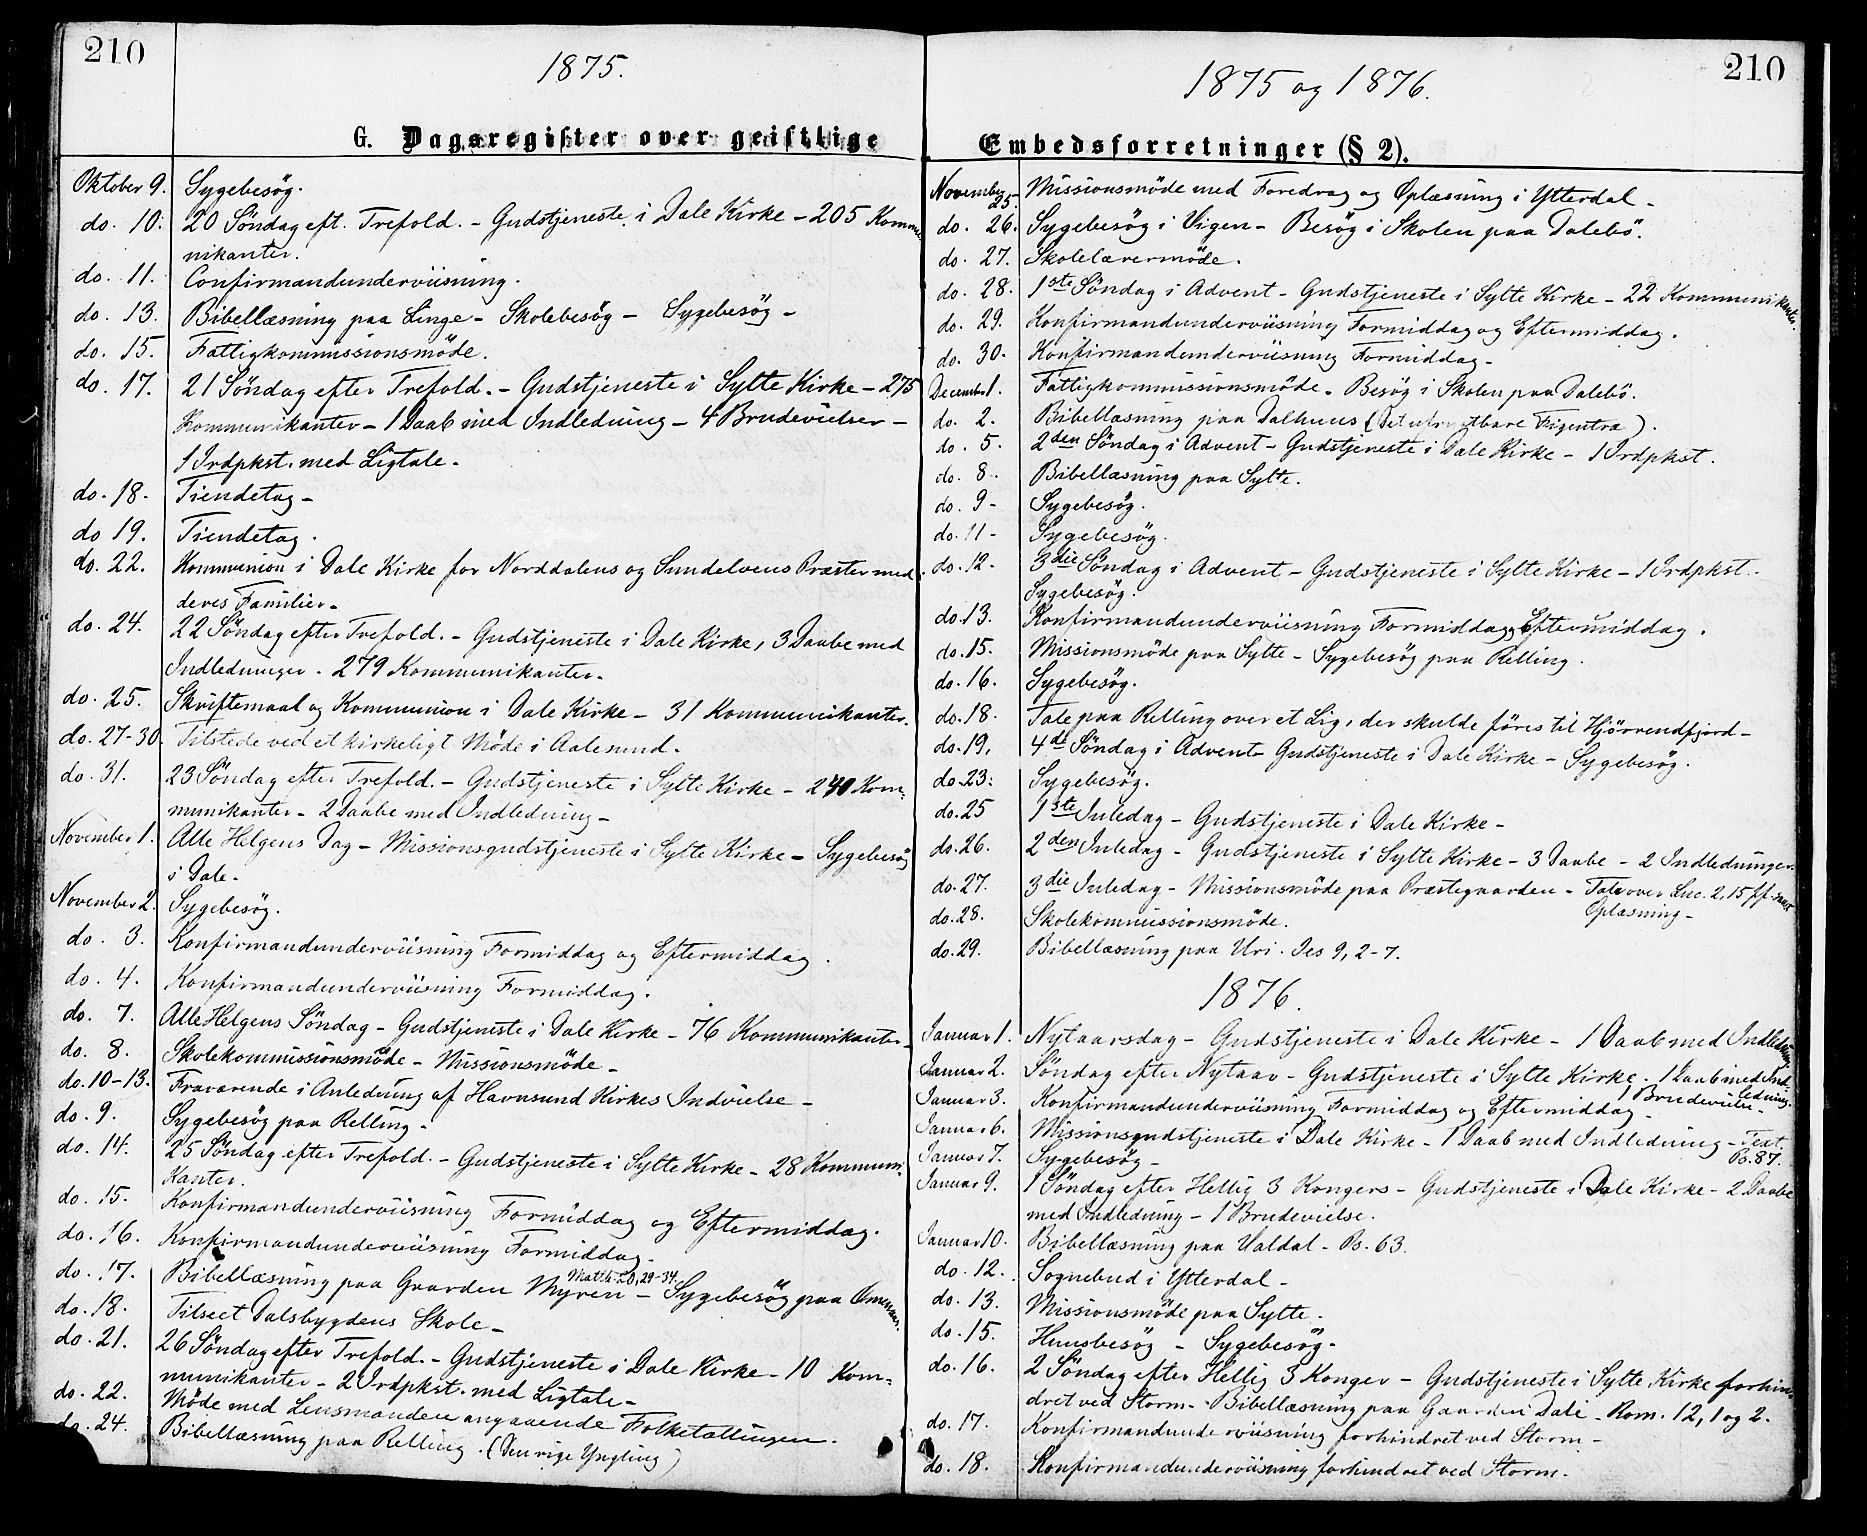 210
1875.
G. Dagsregister over geistlige
Oktober 9. Sygebesøg.
do. 10. 20 Söndag eft. Trefold. - Gudstjeneste i Dale Kirke - 205 Kommu-
nikanter.
do. 11. Confirmandunderviisning.
do. 13. Bibellæsning paa Linge - Skolebesög - Sygebesög -
do. 15. Fattigkommissionsmöde.
do. 17. 21 Söndag efter Trefold. - Gudstjeneste i Sylte Kirke - 275
Kommunikanter - 1 Daab med Indledning - 4 Brudevielser -
1 Jrdpkst. med Ligtale.
do. 18. Tiendetag -
do 19. Tiendetag.
do. 22. Kommunion i Dale Kirke for Norddalens og Sundelvens Præster med
deres Familier -
do. 24. 22 Söndag efter Trefold. - Gudstjeneste i Dale Kirke, 3 Daabe med
Indledninger. 279 Kommunikanter.
do. 25. Skriftemaal og Kommunion i Dale Kirke - 31 Kommunikanter.
do. 27-30. Tilstede ved et kirkeligt Möde i Aalesund.
do. 31. 23 Söndag efter Trefold. - Gudstjeneste i Sylte Kirke - Kom-
munikanter - 2 Daabe med Indledning -
November 1. Alle Helgens Dag - Missionsgudstjeneste i Sylte Kirke - Sygebesög
i Dale.
November 2. Sygebesög.
do. 3. Konfirmandunderviisning Formiddag og Eftermiddag.
do. 4. Konfirmandunderviisning Formiddag.
do. 7. Alle Helgens Söndag - Gudstjeneste i Dale Kirke - 76 Kommunikanter.
do. 8. Skolekommissionsmöde - Missionsmöde -
do. 10-13. Fraværende i Anledning af Havnsund Kirkes Indvielse -
do. 9. Sygebesög paa Relling -
do. 14. 25 Söndag efter Trefold. - Gudstjeneste i Sylte Kirke - 28 Kommuni-
kanter.
do. 15. Konfirmandunderviisning Formiddag og Eftermiddag.
do. 16. Konfirmandunderviisning Formiddag.
do. 17. Bibellæsning paa Gaarden Myren Matth. 20, 29-34. - Sygebesög paa
do. 18. Tilseet Dalsbygdens Skole -
do. 21. 26 Söndag efter Trefold. - Gudstjeneste i Dale Kirke - 10 Kom-
munikanter - 2 Jrdpkst. med Ligtale -
do. 22. Möde med Lensmanden angaaende Folketællingen.
do. 24. Bibellæsning paa Relling. (Den rige Yngling)
210
1875 og 1876.
Embedsforretninger (§ 2).
November 25. Missionsmöde med Foredrag og Oplæsning i Ytterdal -
do. 26. Sygebesög i Vigen - Besög i Skolen paa Dalebö.
do. 27. Skolelærermöde.
do. 28. 1ste Söndag i Advent - Gudstjeneste i Sylte Kirke - 22 Kommunikanter.
do. 29. Konfirmandunderviisning Formiddag og Eftermiddag.
do. 30. Konfirmandunderviisning Formiddag -
December 1. Fattigkommissionsmöde - Besög i Skolen paa Dalebö.
do. 2. Bibellæsning paa Dalhuus (Det ufrugtbare Figentræ).
do. 5. 2den Söndag i Advent - Gudstjeneste i Dale Kirke - 1 Jrdpkst.
do. 8. Bibellæsning paa Sylte.
do. 9 - Sygebesög.
do. 11 - Sygebesög.
do. 12 - 3die Söndag i Advent - Gudstjeneste i Sylte Kirke - 1 Jrdpkst.
Sygebesög.
do. 13. Konfirmandunderviisning Formiddag og Eftermiddag.
do. 15. Missionsmöde paa Sylte - Sygebesög paa Relling.
do. 16. Sygebesög.
do. 18. Tale paa Relling over et Lig, der skulde föres til Hjörrendfjord -
do. 19. 4de Söndag i Advent Gudstjeneste i Dale Kirke - Sygebesög.
do. 23. Sygebesög.
do. 25 1ste Juledag - Gudstjeneste i Dale Kirke -
do. 26. 2den Juledag - Gudstjeneste i Sylte Kirke - 3 Daabe - 2 Indledninger.
do. 27. 3die Juledag - Missionsmöde paa Præstegaarden - Tale over Luc. 2, 15 ff. samt
Oplæsning -
do. 28. Skolekommissionsmöde.
do. 29. Bibellæsning paa Uri. Jes 9, 2-7.
1876.
Januar 1. Nytaarsdag - Gudstjeneste i Dale Kirke - 1 Daab med Indledning
Januar 2. Söndag efter Nytaar - Gudstjeneste i Sylte Kirke. 1 Daab med Ind-
ledning. 1 Brudevielse -
Januar 3. Konfirmandunderviisning Formiddag og Eftermiddag -
Januar 6. Missionsgudstjeneste i Dale Kirke - 1 Daab med Indledning - Text
Ps. 87.
Januar 7. Sygebesög -
Januar 9. 1 Söndag efter Hellig 3 Kongers - Gudstjeneste i Dale Kirke - 2 Daabe
med Indledning - 1 Brudevielse.
Januar 10. Bibellæsning paa Valdal - Ps. 63.
do. 12. Sognebud i Ytterdal -
do. 13. Missionsmöde paa Sylte -
do. 15. Huusbesög - Sygebesög -
do. 16. 2 Söndag efter Hellig 3 Konger - Gudstjeneste i Sylte Kirke forhin-
dret ved Storm - Bibellæsning paa Gaarden Dale - Rom. 12, 1 og 2.
do. 17. Konfirmandunderviisning forhindret ved Storm -
do. 18. Konfirmandunderviisning forhindret ved Storm.